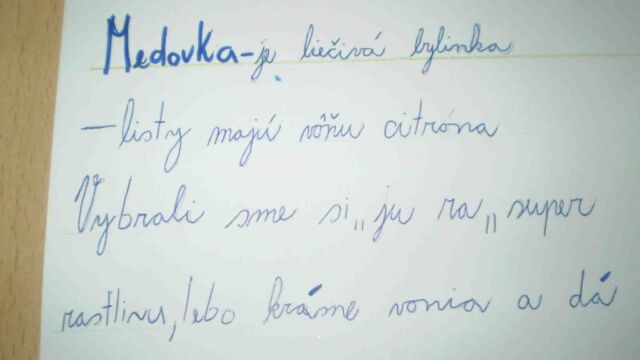 Medovka-je liečivá bylinka
—listy majú vôňu citróna
Vybrali sme si„ju ra„super
rastlinu, lebo krásne vonia a dá